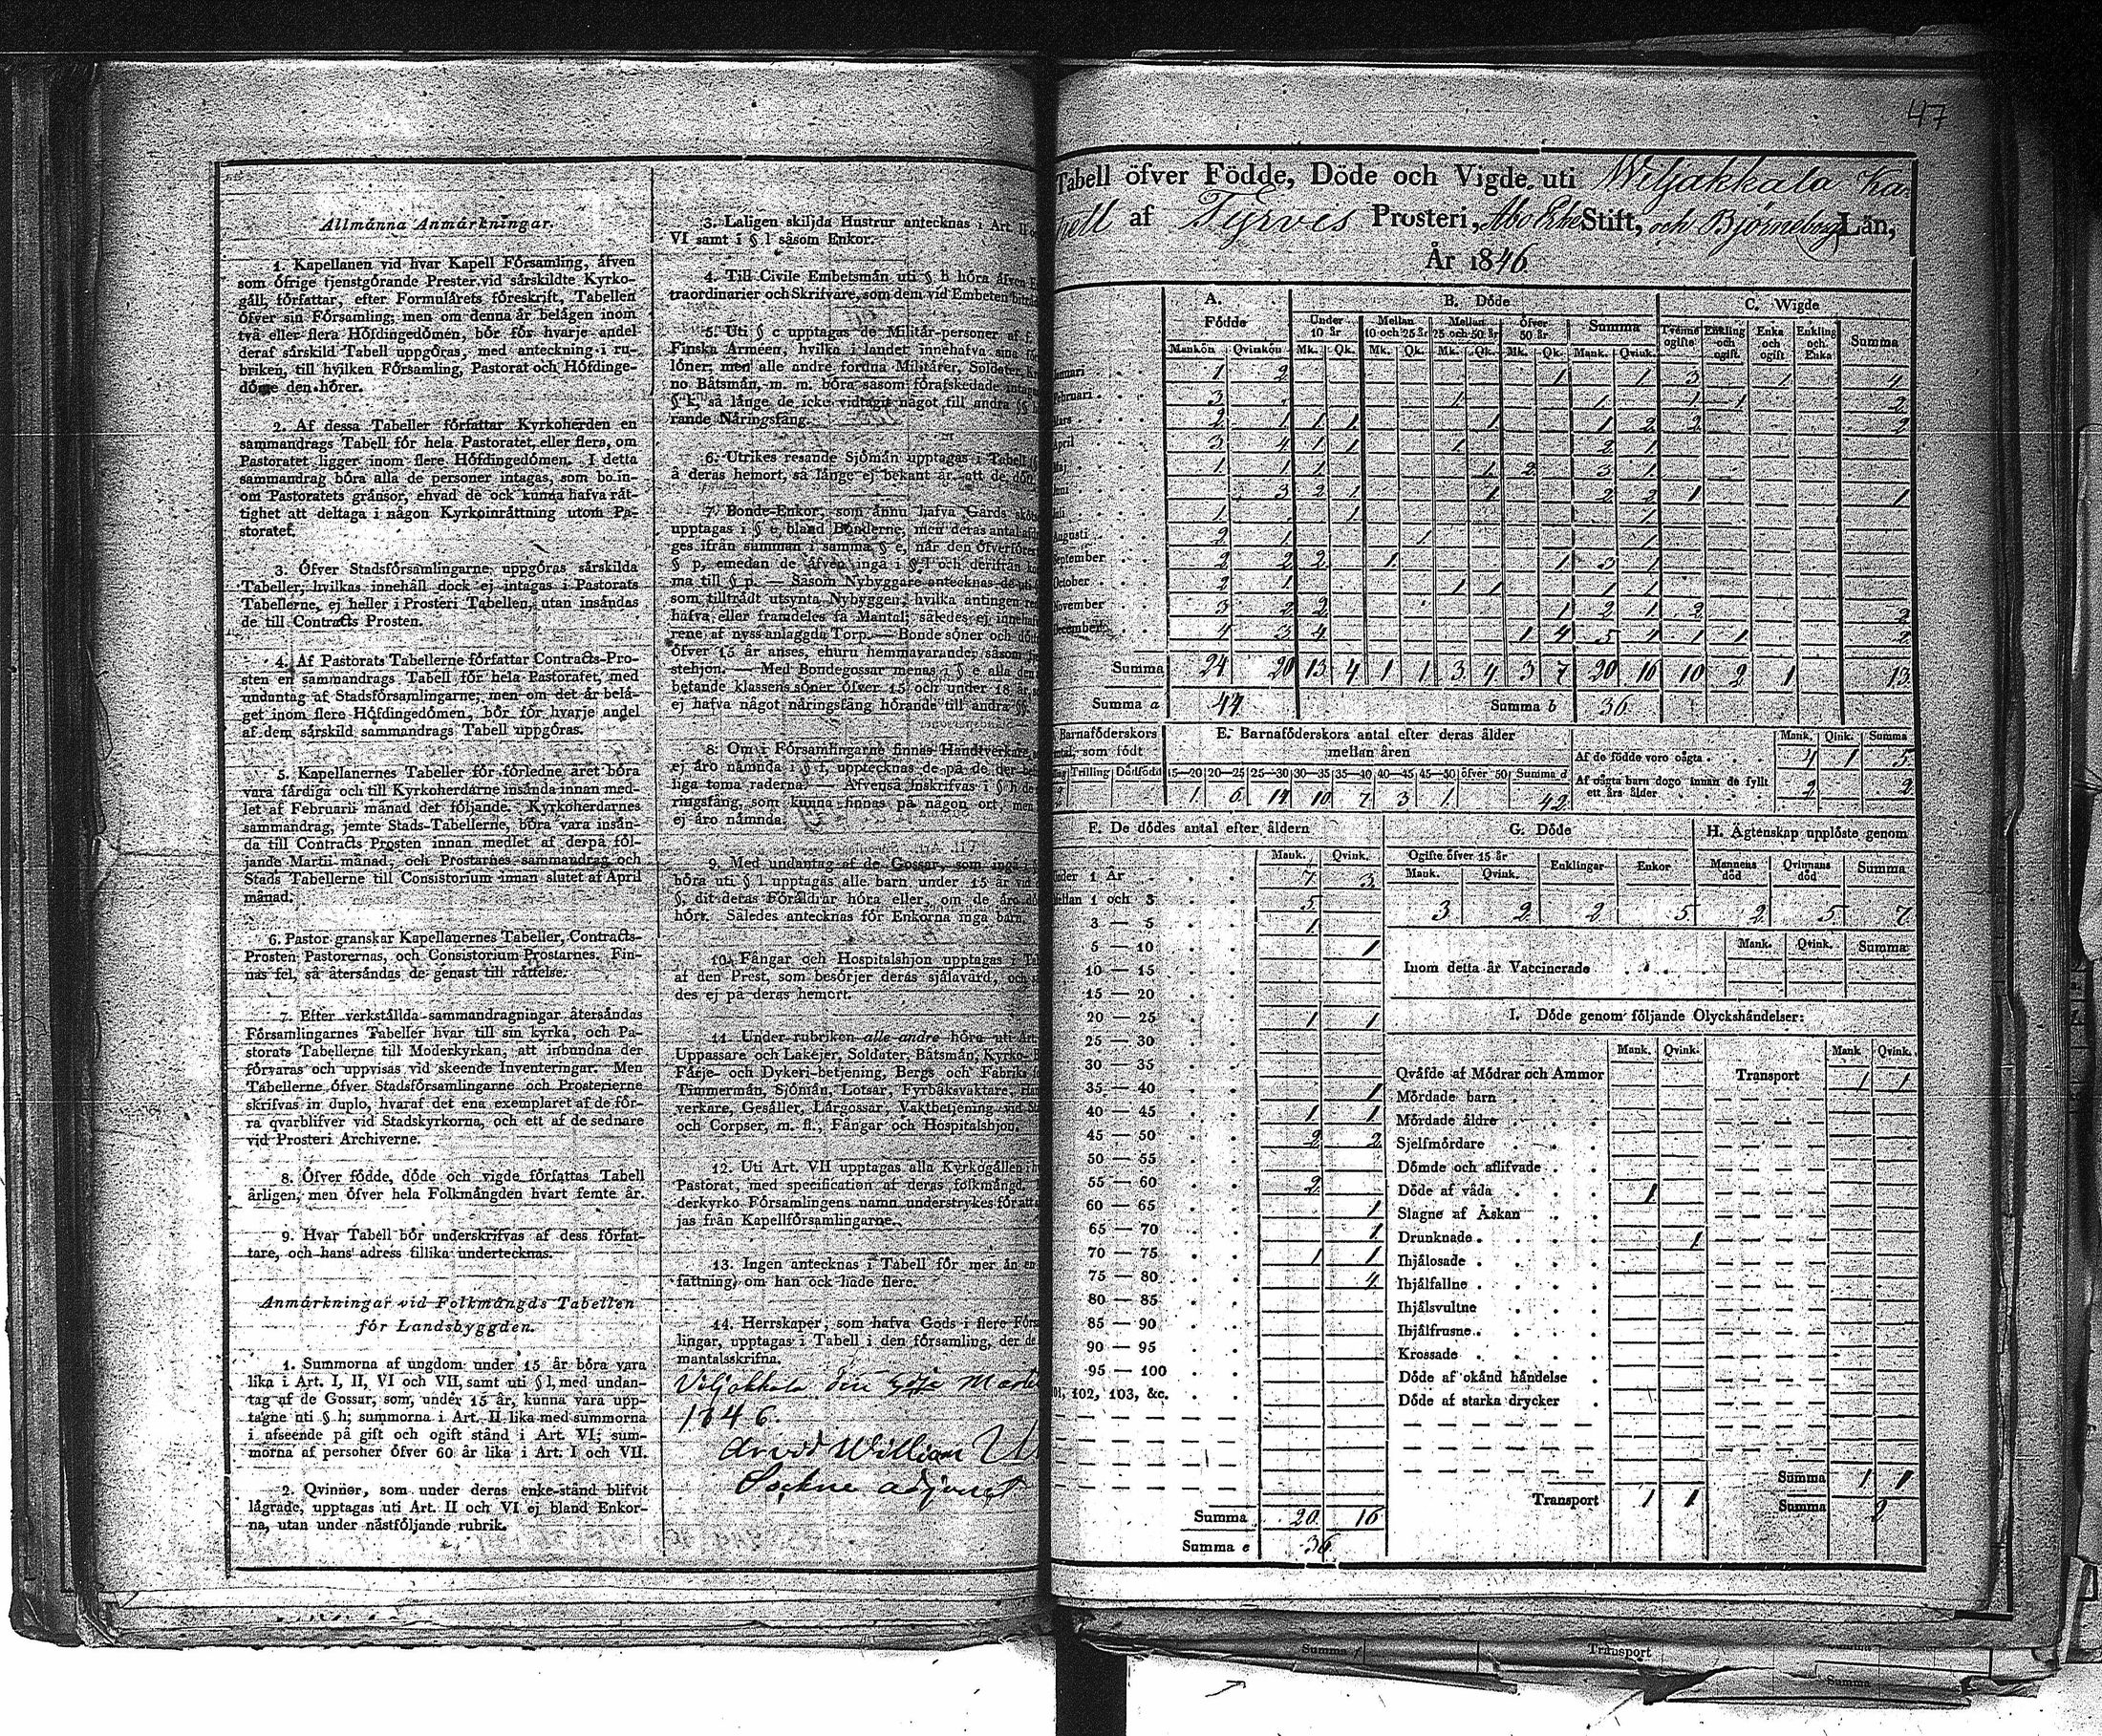 Allmänna Anmärkningar.
1. Kapellanen vid hvar Kapell Församling, äfven
som öfrige tjenstgörande Prester vid särskildte Kyrko-
gäll, författar, efter Formulärets föreskrift, Tabellen
öfver sin Församling; men om denna är belägen inom
två eller flera Höfdingedömen, bör för hvarje andel
deraf särskild Tabell uppgöras, med anteckning i ru-
briken, till hvilken Församling, Pastorat och Höfdinge-
döme den hörer.
2. Af dessa Tabeller författar Kyrkoherden en
sammandrags Tabell för hela Pastoratet, eller flera, om
Pastoratet ligger inom flere Höfdingedömen. I detta
sammandrag böra alla de personer intagas, som bo in-
om Pastoratets gränsor, ehvad de ock kunna hafva rät-
tighet att deltaga i någon Kyrkoinrättning utom Pa-
storatet.
3. Öfver Stadsförsamlingarne uppgöras särskilda
Tabeller, hvilkas innehåll dock ej intagas i Pastorats
Tabellerne, ej heller i Prosteri Tabellen, utan insändas
de till Contracts Prosten.
4. Af Pastorats Tabellerne författar Contracts-Pro-
sten en sammandrags Tabell för hela Pastoratet, med
undantag af Stadsförsamlingarne; men om det är belä-
get inom flere Höfdingedömen, bör för hvarje andel
af dem särskild sammandrags Tabell uppgöras.
5. Kapellanernes Tabeller för förledne året böra
vara färdiga och till Kyrkoherdarne insända innan med-
let af Februarii månad det följande. Kyrkoherdarnes
sammandrag, jemte Stads-Tabellerne, böra vara insän-
da till Contracts Prosten innan medlet af derpå föl-
jande Martii månad, och Prostarnes sammandrag och
Stads Tabellerne till Consistorium innan slutet af April
månad.
6. Pastor granskar Kapellanernes Tabeller, Contracts-
Prosten Pastorernas, och Consistorium Prostarnes. Fin-
nas fel, så återsändas de genast till rättelse.
7. Efter verkställda sammandragningar återsändas
Församlingarnes Tabeller hvar till sin kyrka, och Pa-
storats Tabellerne till Moderkyrkan, att inbundna der
förvaras och uppvisas vid skeende Inventeringar. Men
Tabellerne öfver Stadsförsamlingarne och Prosterierne
skrifvas in duplo, hvaraf det ena exemplaret af de för-
ra qvarblifver vid Stadskyrkorna, och ett af de sednare
vid Prosteri Archiverne.
8. Öfver födde, döde och vigde författas Tabell
årligen, men öfver hela Folkmängden hvart femte år.
9. Hvar Tabell bör underskrifvas af dess förfat-
tare, och hans adress tillika undertecknas.
Anmärkningar vid Folkmängds Tabellen
för Landsbyggden.
1. Summorna af ungdom under 15 år böra vara
lika i Art. I, II, VI och VII, samt uti § l, med undan-
tag af de Gossar, som, under 15 år, kunna vara upp-
tagne uti § h; summorna i Art. II lika med summorna
i afseende på gift och ogift stånd i Art. VI; sum-
morna af personer öfver 60 år lika i Art. I och VII.
2. Qvinnor, som under deras enke-stånd blifvit
lägrade, upptagas uti Art. II och VI ej bland Enkor-
na, utan under nästföljande rubrik.
3. Laligen skiljda Hustrur antecknas i Art. II
VI samt i § l såsom Enkor.
4. Till Civile Embetsmän uti § b höra äfven
traordinarier och Skrifvare, som dem vid Embeten
5. Uti § c upptagas de Militär-personer af f.
Finska Arméen, hvilka i landet innehafva sina
löner; men alle andre fordna Militärer, Soldater,
no Båtsmän, m. m. böra såsom förafskedade
§ k, så länge de icke vidtagit något till andra §§
rande Näringsfång.
6. Utrikes resande Sjömän upptagas i Tabell
å deras hemort, så länge ej bekant är att de
7. Bonde-Enkor, som ännu hafva Gårds
upptagas i § e bland Bönderne, men deras antal
ges ifrån summan i samma § e, når den öfverföres
§ p, emedan de äfven ingå i § l och derifrån
ma till § p. — Såsom Nybyggare antecknas de
som tillträdt utsynta Nybyggen, hvilka antingen
hafva eller framdeles få Mantal; således ej
rene af nyss anlaggda Torp. — Bonde söner och
öfver 15 år anses, ehuru hemmavarande, såsom
stehjon. — Med Bondegossar menas i § e alla den
betande klassens söner öfver 15 och under 18 år,
ej hafva något näringsfång hörande till andra §§.
8. Om i Församlingarne finnas Handtverkare,
ej äro nämnda i § f, upptecknas de på de der
liga toma raderna. — Äfvenså inskrifvas i § h de
ringsfång, som kunna finnas på någon ort, men
ej äro nämnda.
9. Med undantag af de Gossar, som ingå
böra uti § l upptagas alle barn under 15 år vid
§, dit deras Föräldrar höra eller, om de äro
hört. Således antecknas för Enkorna inga barn.
10. Fångar och Hospitalshjon upptagas i
af den Prest, som besörjer deras själavård, och
des ej på deras hemort.
11. Under rubriken alle andre höra uti Art.
Uppassare och Lakejer, Soldater, Båtsmän, Kyrko-
Färje- och Dykeri-betjening, Bergs och Fabriks
Timmermän, Sjömän, Lotsar, Fyrbåksvaktare,
verkare, Gesäller, Lärgossar, Vaktbetjening vid
och Corpser, m. fl., Fångar och Hospitalshjon.
12. Uti Art. VII upptagas alla Kyrkogällen i
Pastorat, med specification af deras folkmängd.
derkyrko Församlingens namn understrykes för att
jas från Kapellförsamlingarne.
13. Ingen antecknas i Tabell för mer än en
fattning, om han ock hade flere.
14. Herrskaper, som hafva Gods i flere
lingar, upptagas i Tabell i den församling, der de
mantalsskrifna.
Viljakkala den
1846.
Arvid William
Sockne adjunct
47
Tabell öfver Födde, Döde och Vigde uti Wiljakkala Ka-
pell af Tyrvis Prosteri, Åbo Erke Stift, och Björneborg Län,
År 1846
A. Födde B. Döde C. Wigde
Under 10 år Mellan 10 och 25 år Mellan 25 och 50 år Öfver 50 år Summa Tvenne ogifte Enkling och ogift. Enka och ogift Enkling och Enka Summa
Mankön Qvinkön Mk. Qk. Mk. Qk. Mk. Qk. Mk. Qk. Mank. Qvink.
Januari 1 2 1 1 3 1 4
Februari 3 1 1 1 1 2
Mars 2 1 1 1 1 1 2 2 2
April 3 4 1 1 1 2 1
Maj 1 1 1 1 2 3 1
Juni 3 2 1 1 2 2 1 1
Juli 1 1 1
Augusti 2 1 1 1
September 2 2 2 1 1 3 1
October 2 1 1 1 1 1
November 3 2 2 1 2 1 2 2
December 4 3 4 1 4 5 4 1 1 2
Summa 24 20 13 4 1 1 3 4 3 7 20 16 10 2 1 13
Summa a 44 Summa b 36
Barnaföderskors antal, som födt
Trilling Dödfödt
E. Barnaföderskors antal efter deras ålder
mellan åren
15—20 20—25 25—30 30—35 35—40 40—45 45—50 öfver 50 Summa d
1 6 14 10 7 3 1 42
Mank. Qink. Summa
Af de födde voro oägta 4 1 5
Af oägta barn dogo innan de fyllt
ett års ålder 2 2
F. De dödes antal efter åldern
Mank. Qvink.
Under 1 År 7 3
Mellan 1 och 3 5
3 — 5 1
5 — 10 1
10 — 15
15 — 20
20 — 25 1 1
25 — 30
30 — 35
35 — 40 1
40 — 45 1 1
45 — 50 2 2
50 — 55
55 — 60 2
60 — 65 1
65 — 70 1
70 — 75 1 1
75 — 80 4
80 — 85
85 — 90
90 — 95
95 — 100
101, 102, 103, &c.
Summa 20 16
Summa e 36
G. Döde
Ogifte öfver 15 år Enklingar Enkor
Mank. Qvink.
3 2 2 5
H. Ägtenskap upplöste genom
Mannens död Qvinnans död Summa
2 5 7
Mank. Qvink. Summa
Inom detta år Vaccinerade
I. Döde genom följande Olyckshändelser:
Mank. Qvink. Mank Qvink.
Qväfde af Mödrar och Ammor Transport 1 1
Mördade barn
Mördade äldre
Sjelfmördare
Dömde och aflifvade
Döde af våda 1
Slagne af Åskan
Drunknade 1
Ihjälosade
Ihjälfallne
Ihjälsvultne
Ihjälfrusne
Krossade
Döde af okänd händelse
Döde af starka drycker
Summa 1 1
Transport 1 1
Summa 2
Summa
Transport
Summa